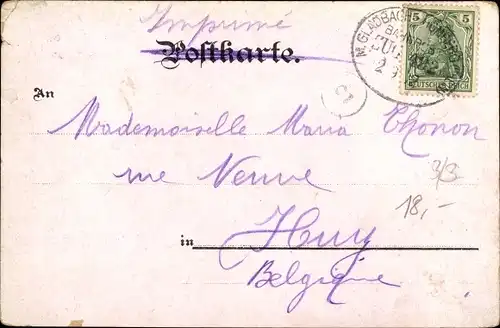 Imprimé
Postkarte.
5 5
M. GLADBACH
DEUTSCHES REICH
An
Mademoiselle Maria Thonon
rue Neuve
3/3
18,-
in Huy
Belgique